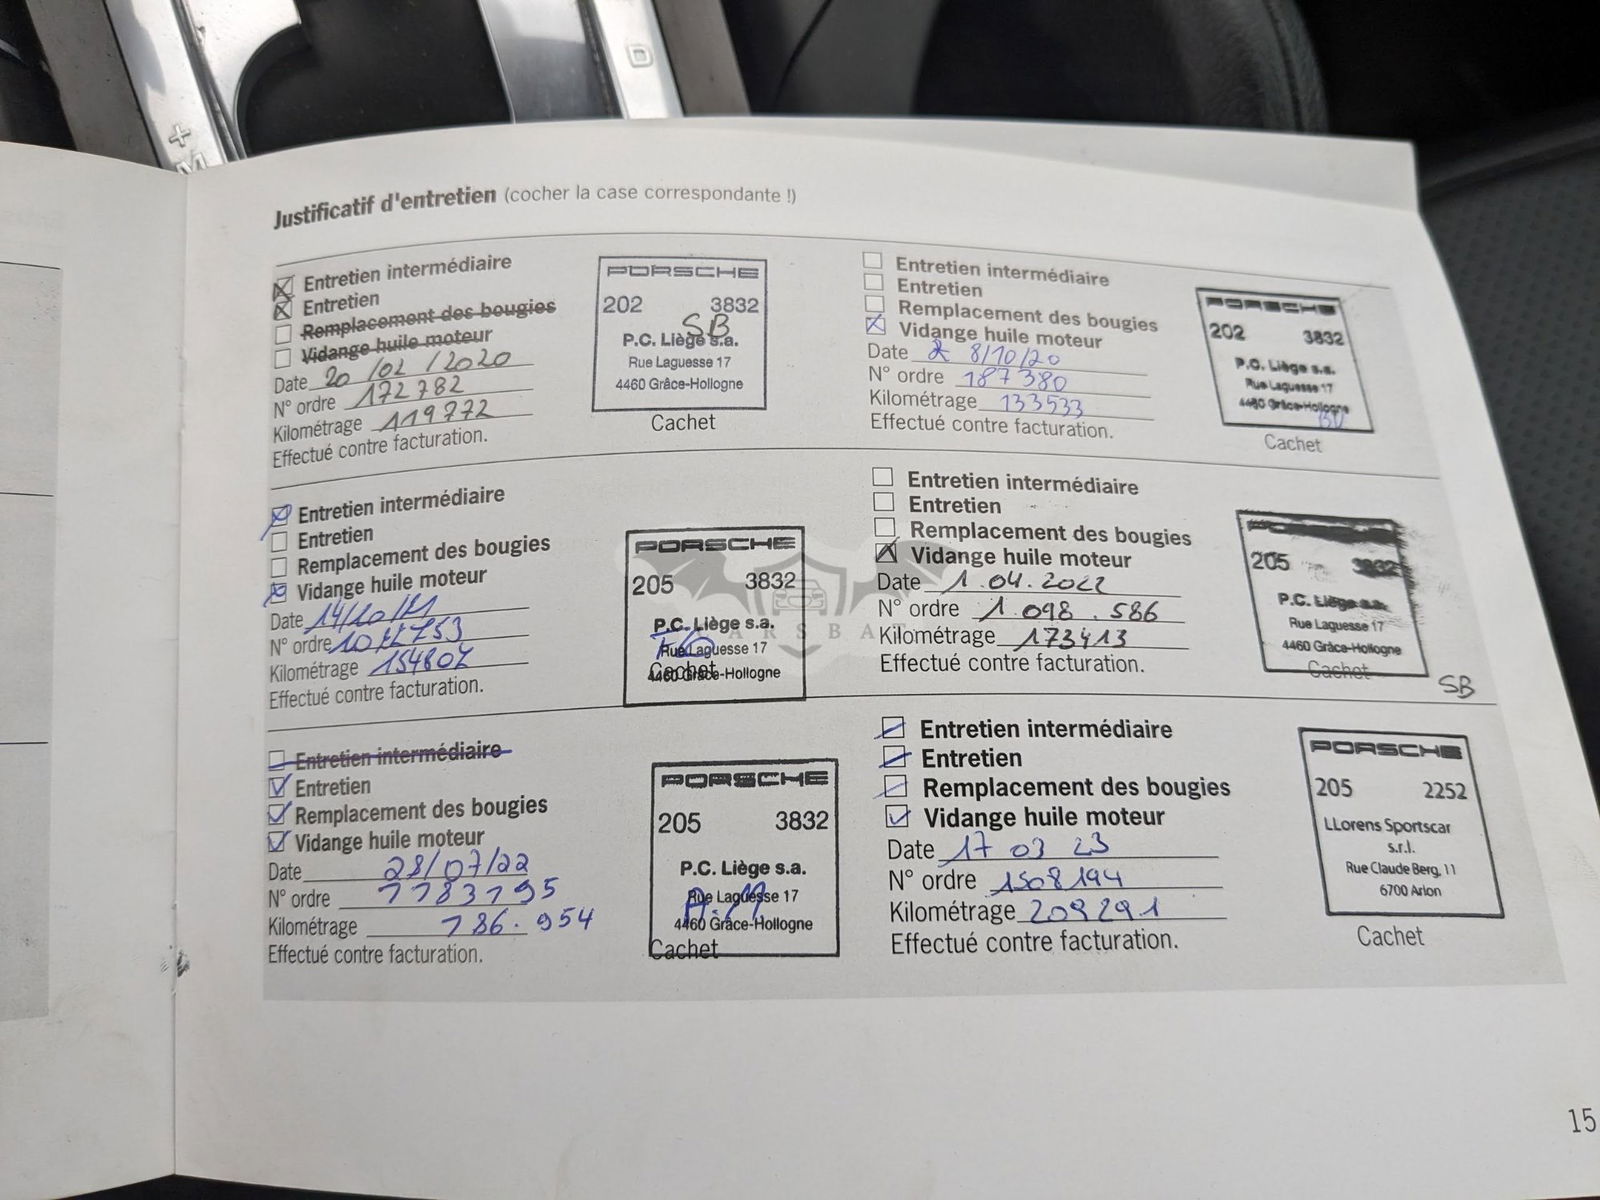 D
+
M
Justificatif d'entretien (cocher la case correspondante !)
Entretien intermédiaire
Entretien
Remplacement des bougies
Vidange huile moteur
Date 20/02/2020
N° ordre 172782
Kilométrage 119772
Effectué contre facturation.
PORSCHE
202 3832
SB
P.C. Liège s.a.
Rue Laguesse 17
4460 Grâce-Hollogne
Cachet
Entretien intermédiaire
Entretien
Remplacement des bougies
Vidange huile moteur
Date 8/10/20
N° ordre 187380
Kilométrage 133533
Effectué contre facturation.
PORSCHE
202 3832
P.C. Liège s.a.
Rue Laguesse 17
4460 Grâce-Hollogne
Cachet
Entretien intermédiaire
Entretien
Remplacement des bougies
Vidange huile moteur
Date 14/10/21
N° ordre
Kilométrage 154807
Effectué contre facturation.
PORSCHE
205 3832
P.C. Liège s.a.
Rue Laguesse 17
4460 Grâce-Hollogne
Cachet
ARSBAT
Entretien intermédiaire
Entretien
Remplacement des bougies
Vidange huile moteur
Date 1.04.2022
N° ordre 1.098.586
Kilométrage 173413
Effectué contre facturation.
205 3832
P.C. Liège s.a.
Rue Laguesse 17
4460 Grâce-Hollogne
Cachet
SB
Entretien intermédiaire
Entretien
Remplacement des bougies
Vidange huile moteur
Date 28/07/22
N° ordre 1183195
Kilométrage 186.954
Effectué contre facturation.
PORSCHE
205 3832
P.C. Liège s.a.
Rue Laguesse 17
4460 Grâce-Hollogne
Cachet
Entretien intermédiaire
Entretien
Remplacement des bougies
Vidange huile moteur
Date 17 03 23
N° ordre 1508194
Kilométrage 209291
Effectué contre facturation.
PORSCHE
205 2252
LLorens Sportscar
s.r.l.
Rue Claude Berg, 11
6700 Arlon
Cachet
15